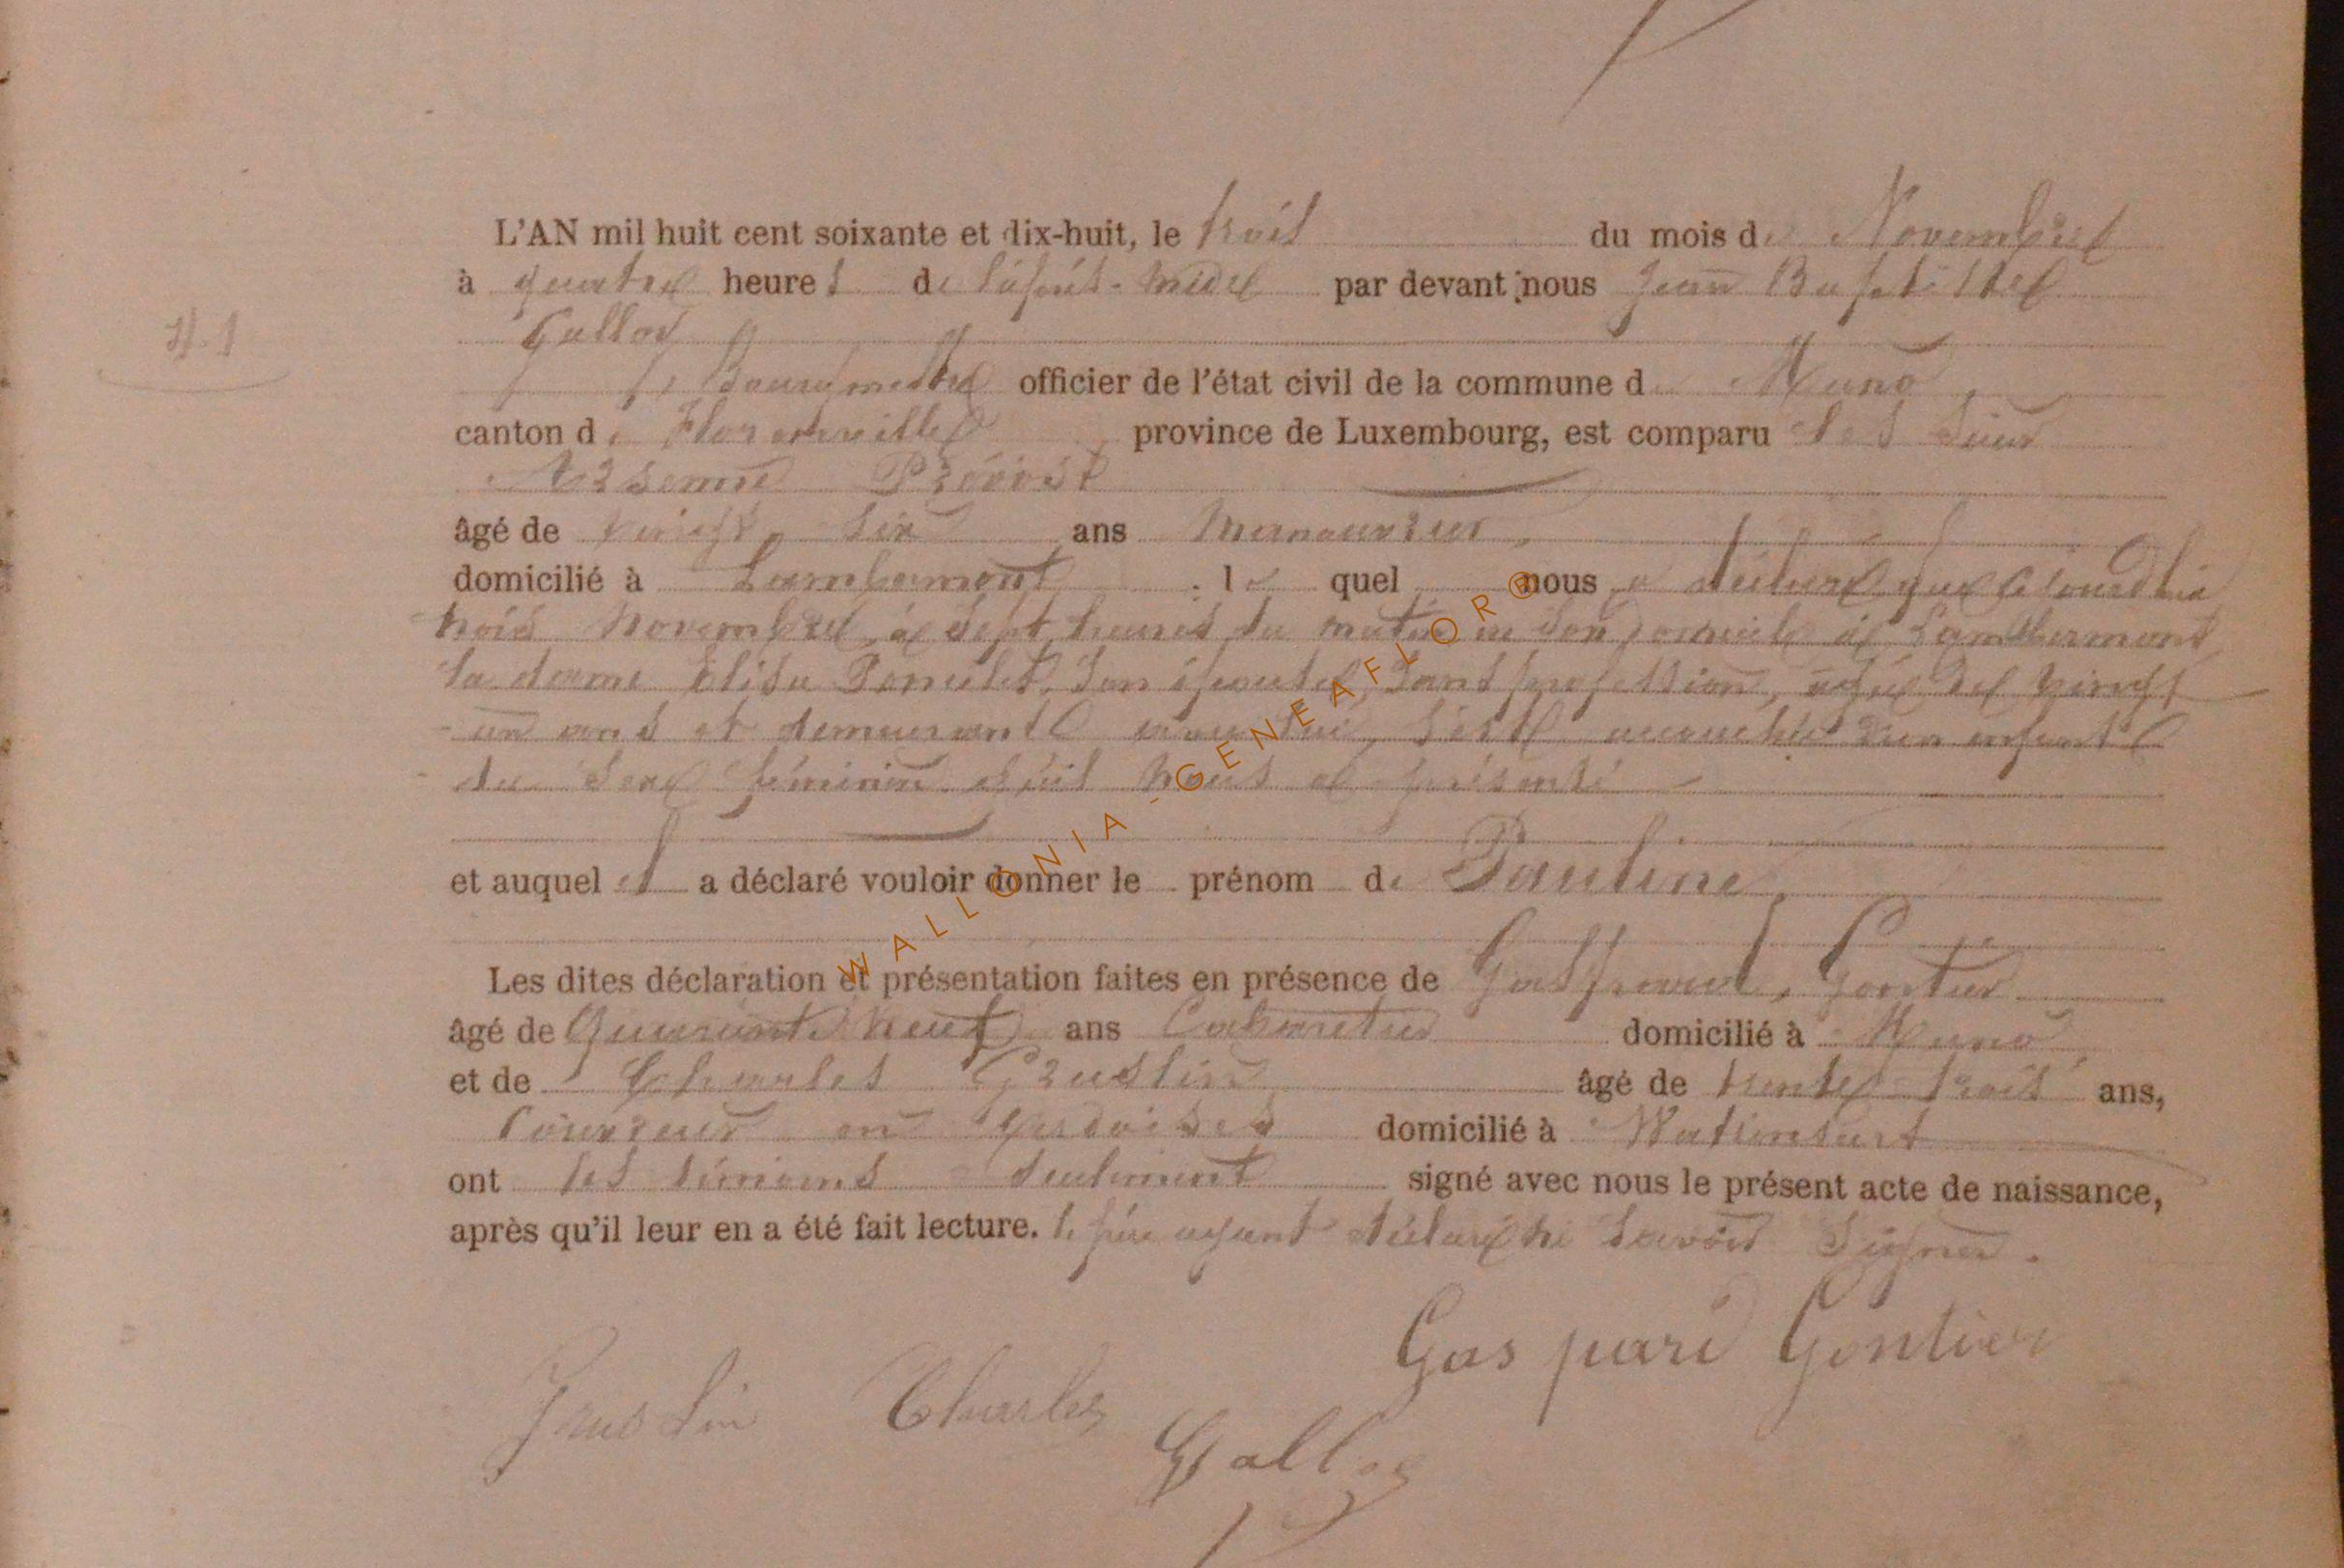 L'AN mil huit cent soixante et dix-huit, le trois du mois de Novembre
à quatre heures de l'après-midi par devant nous Jean Baptiste
Galloy
Bourgmestre officier de l'état civil de la commune de Muno
canton de Florenville province de Luxembourg, est comparu le Sieur
Arsenne Prévost
41
âgé de vingt six ans Manouvrier,
domicilié à Lambermont lequel nous a déclaré que ce jourd'hui
trois Novembre, à sept heures du matin en son domicile à Lambermont
la dame Elisa son épouse, sans profession, agée de vingt
un ans et demeurant avec lui, s'est accouchée d'un enfant
du sexe féminin qu'il nous a présenté
et auquel il a déclaré vouloir donner le prénom de Pauline,
Les dites déclaration et présentation faites en présence de Gaspard Gontier
âgé de Quarante neuf ans Cabaretier domicilié à Muno
et de Charles Gruslin âgé de trente trois ans,
Couvreur en ardoises domicilié à Watrinsart
ont les témoins seulement signé avec nous le présent acte de naissance,
après qu'il leur en a été fait lecture. le père ayant déclaré ne savoir signer.
Gaspard Gontier
Gruslin Charles
Galloy
WALLONIA-GENEAFLOR®